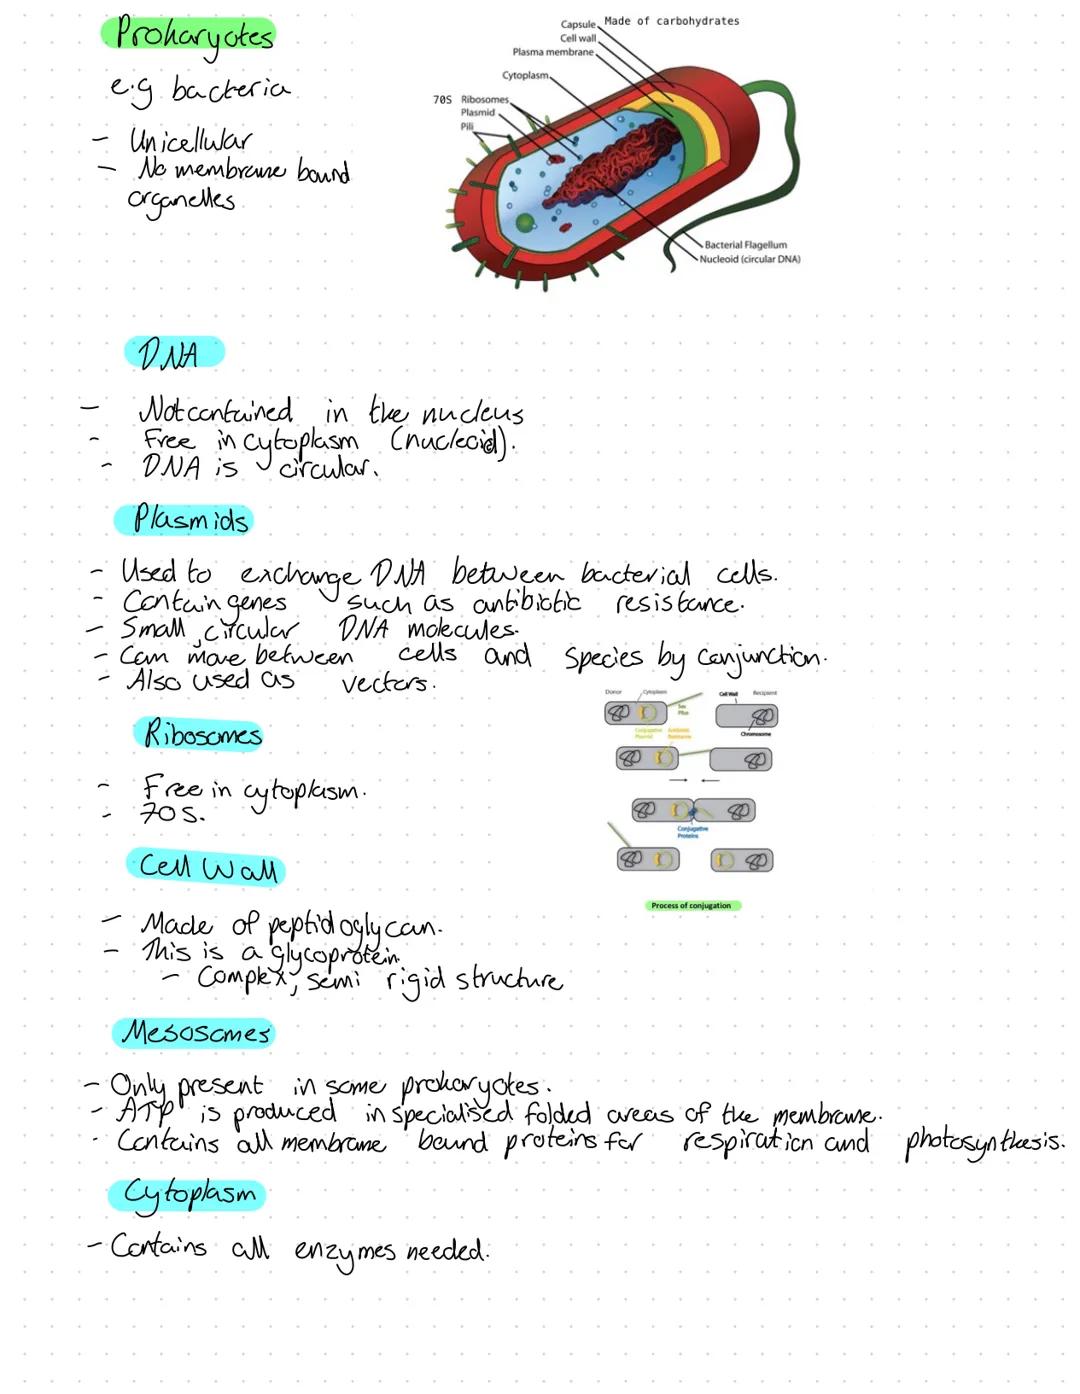 Prokaryotes
e.g bacteria
- Unicellular
- No membrane bound
organelles
Capsule
Made of carbohydrates
Cell wall
Plasma membrane
Cytoplasm
70S Ribosomes
Plasmid
Pili
Bacterial Flagellum
Nucleoid (circular DNA)
DNA
- Not contained in the nucleus
- Free in cytoplasm (nucleoid).
- DNA is circular.
Plasmids
- Used to exchange DNA between bacterial cells.
- Contain genes such as antibiotic resistance.
- Small, circular DNA molecules.
- Can move between cells and species by conjunction.
- Also used as vectors.
Donor
Cytoplasm
Sex
Pilus
Cell Wall
Recipient
Conjugative
Plasmid
Antibiotic
Resistance
Chromosome
Conjugative
Proteins
Process of conjugation
Ribosomes
- Free in cytoplasm.
- 70S.
Cell Wall
- Made of peptidoglycan.
- This is a glycoprotein.
- Complex, semi rigid structure
Mesosomes
- Only present in some prokaryotes.
- ATP is produced in specialised folded areas of the membrane.
- Contains all membrane bound proteins for respiration and photosynthesis.
Cytoplasm
- Contains all enzymes needed.